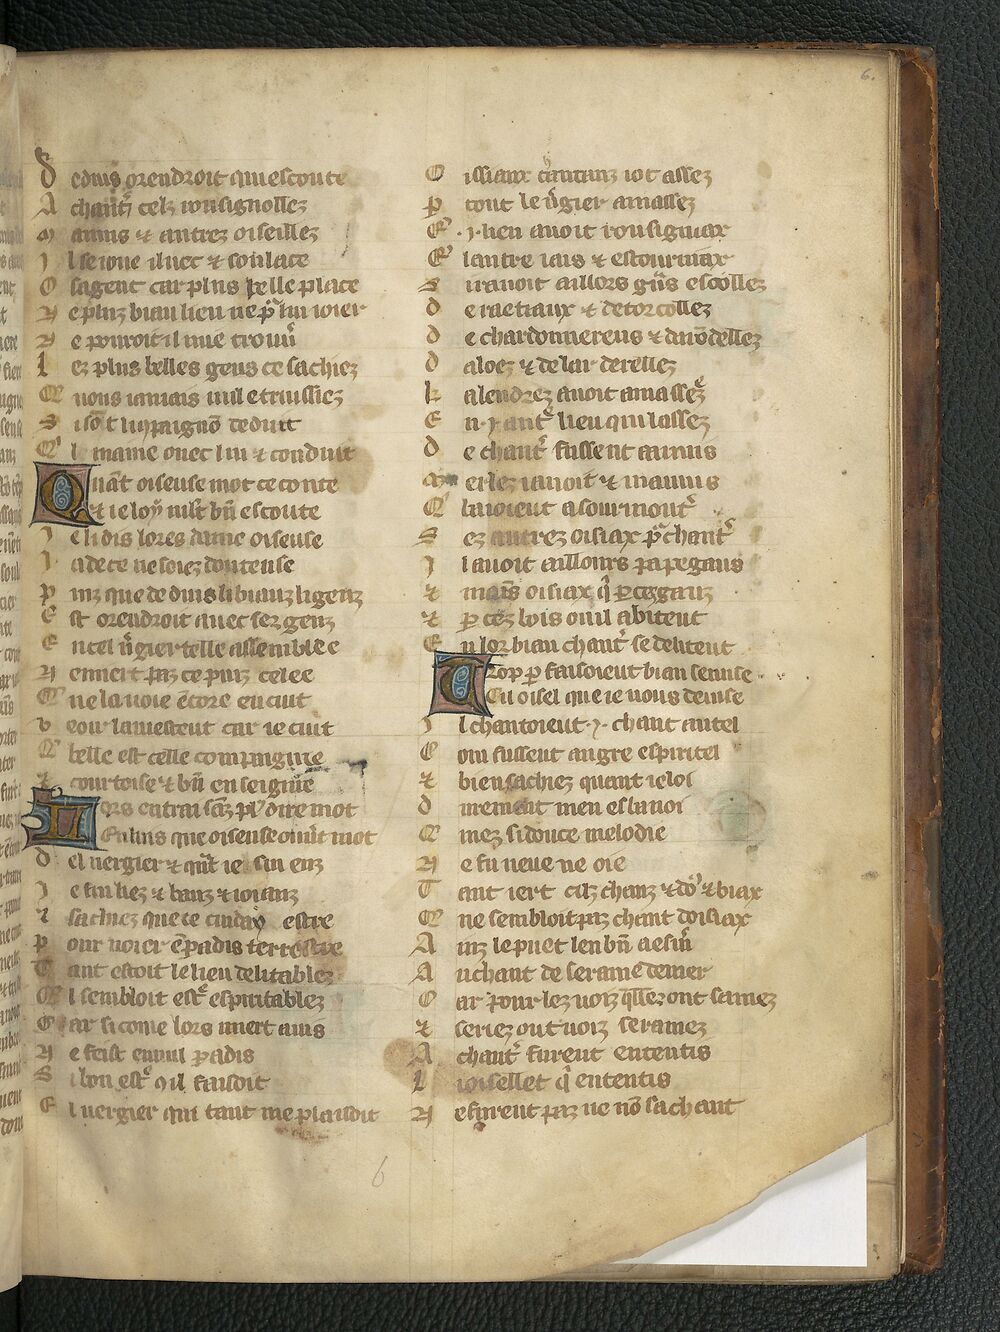 6.
Deduis orendroit qui escoute
A chant̃ celz rousignollez
Mauuis ⁊ autrez oiseillez
Il se ioue iluec ⁊ soulace
O sa gent car plus belle place
Ne plus biau lieu ne pͬ lui ioier
Ne pouroit il mie trouũ
Lez plus belles gens ce sachiez
Q̉ uous iamais nul e truissiez
Si sõt li ↄpaignõ deduit
Q̉ le maine ouec lui ⁊ conduit
Quãt oiseuse mot ce conte
Et ie loÿ mlt̃ bñ escoute
Ie li dis lores dame oiseuse
Ia de ce ne soiez douteuse
Puiz que deduis li biauz li genz
Est orendroit auec sez genz
En cel ũgier telle assemblee
Ne miert paz ce puiz celee
Que la uoie ẽcore encuit
Veoir la mestent car ie cuit
Q̉ belle est celle compaignie
⁊ courtoise ⁊ bñ enseignie
Lors entrai sãz pl᷒ dire mot
Par luis que oiseuse ouũt mot
Del uergier ⁊ q̃nt ie fui enz
Ie fui liez ⁊ bauz ⁊ ioianz
⁊ sachiez que ce cuiday estre
Pour uoier ẽ ꝑadis terrestre
Tant estoit le lieu delitablez
Q̉l sembloit est̉ espiritablez
Car si come lors miert auis
Ne feist en nul ꝑadis
Si bon est̉ ↄ il faisoit
El uergier qui tant me plaisoit
6
Oissiaux chantanz iot assez
P tout le ũgier amassez
E .j. lieu auoit rousignax
E lautre iais ⁊ estourniax
Si rauoit aillors gñs escollez
De raetiaux ⁊ de torcollez
De chardonnereus ⁊ darõdellez
Daloez ⁊ de larderellez
Kalendrez auoit amassez
En .j. aut̉ lieu qui lassez
De chant̉ fussent a enuis
Merlez i auoit ⁊ mauuis
Q̉ baioient a sourmont̉
Sez autrez oisiax pͬ chant̉
Il auoit aillours papegaus
⁊ mains oisiax q̃ ꝑ cez gaus
⁊ ꝑ cez bois ou il abitent
En lor biau chant̉ se delitent
Trop ꝑ faisoient biau seruise
Cil oisel que ie uous deuise
Il chantoient .j. chant autel
Com fussent angre espiritel
⁊ bien sachiez quant ie loi
Durement men esianoi
Q̉ mez si douce melodie
Ne fu neue ne oie
Tant iert cilz chanz ⁊ doͮz ⁊ biax
Q̉ ne sembloit paz chant doisiax
Ainz le puet len bñ aesm̃
A chant de seraine de mer
Car pour lez uoiz q̃llez ont sainez
⁊ seriez ont noiz seraines
A chant̉ furent ententis
Li oisellet q̃ ententis
Ne furent paz ne nõ sachant